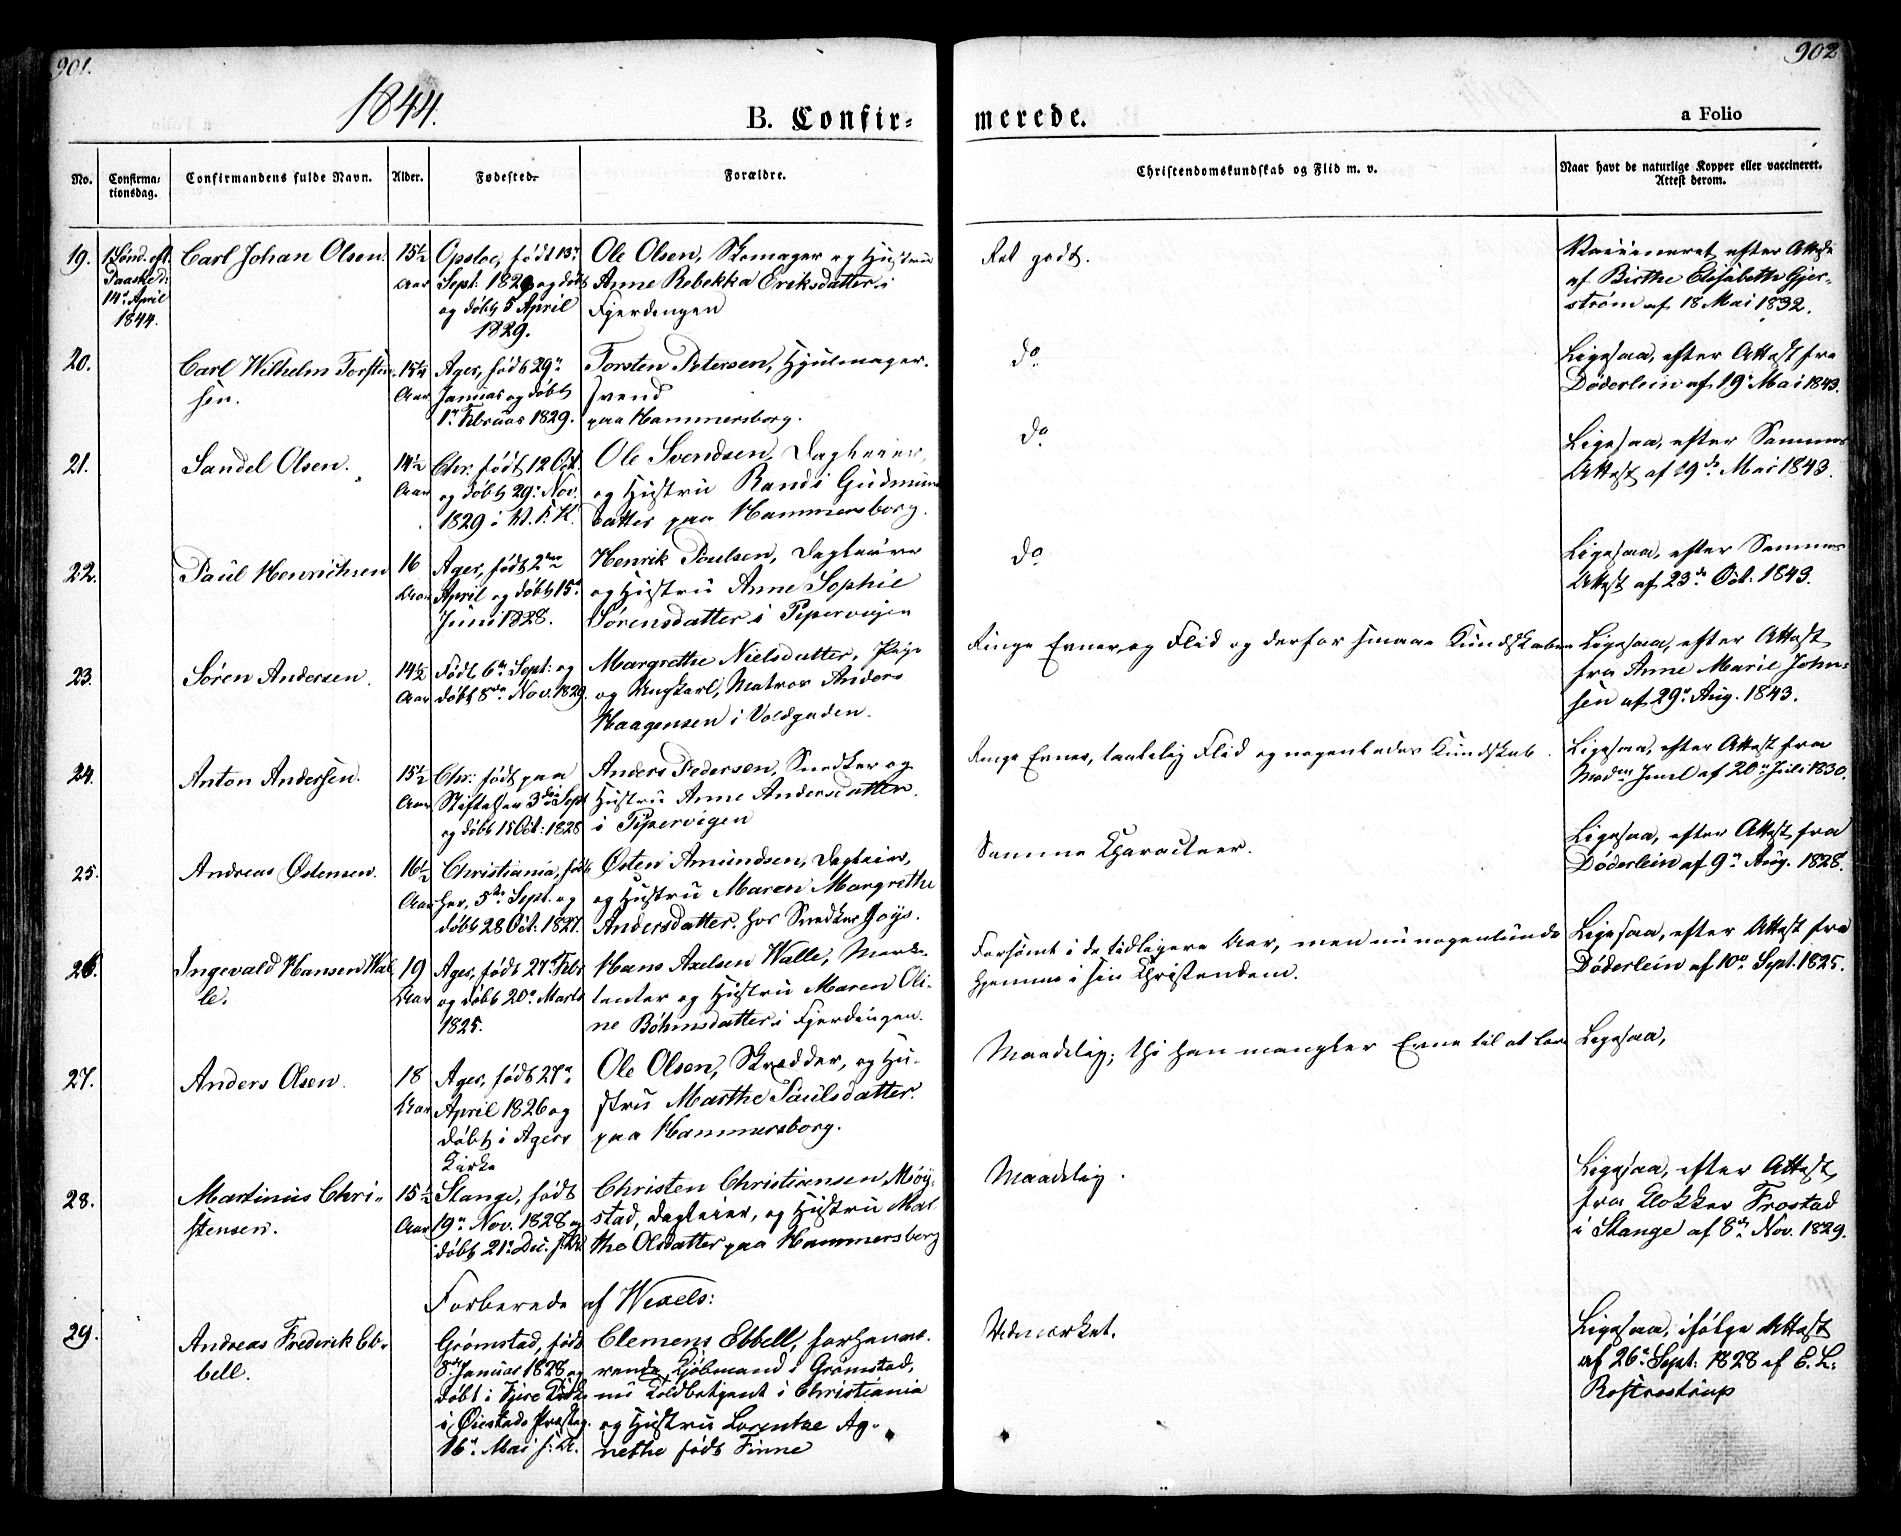 901.
902
1844.
B. Confir-
merede.
a Folio
No.
Confirma-
tionsdag.
Confirmandens fulde Navn.
Alder.
Fødested.
Forældre.
Christendomskundskab og Flid m. v.
Naar havt de naturlige Kopper eller vaccineret.
Attest derom.
19.
1 Sönd. eft.
Paaske d:
14de April
1844.
Carl Johan Olsen.
15½
Aar
Opsloe, født 13de
Sept: 1828 og døbt
og døbt 5 April
1829.
Ole Olsen, Skomager og Hustru
Anne Rebekka Eriksdatter i
Fjerdingen
Ret godt.
Vaccineret efter Attest
af Birthe Elisabeth Gjer-
strøm af 18 Mai 1832.
20.
Carl Wilhelm Torsten-
sen.
15¼
Aar
Ager, født 29de
Januar og døbt
1ste Februar 1829.
Torsten Petersen, Hjulmager-
svend
paa Hammersborg.
do
Ligesaa, efter Attest fra
Døderlein af 19de Mai 1843.
21.
Sandel Olsen.
14½
Aar
Chr. født 12 Oct.
og døbt 29de Nov.
1829 i V. F. K.
Ole Svendsen, Dagleier,
og Hustru Randi Gudmunds
datter paa Hammersborg.
do
Ligesaa, efter Sammes
Attest af 19de Mai 1843.
22.
Paul Henrichsen
16
Aar
Ager, født 2den
April og døbt 15de
Juni 1828.
Henrik Poulsen, Dagleier
og Hustru Anne Sophie
Sørensdatter i Pipervigen
do
Ligesaa, efter Sammes
Attest af 23de Oct: 1843.
23.
Søren Andersen.
14½
Aar
Født 6te Sept: og
døbt 8de Nov. 1829.
Margrethe Nielsdatter, Pige
og Ungkarl, Matros Anders
Haagensen i Voldgaden.
Ringe Evner og Flid og derfor smaae Kundskaber
Ligesaa, efter Attest
fra Anne Marie John-
sen af 29de Aug. 1843.
24.
Anton Andersen.
15½
Aar
Chr: født paa
Stiftelsen 3die Sept
og døbt 15 Oct: 1828
Anders Pedersen, Snedker og
Hustru Anne Andersdatter
i Pipervigen
Ringe Evner, taalelig Flid og nogenledes Kundskab.
Ligesaa, efter Attest fra
Mad. Juul af 20de Juli 1830.
25.
Andreas Østensen.
16½
Aar
Christiania, født
her, 5te Sept. og
døbt 28 Oct: 1827.
Østen Amundsen, Dagleier,
og Hustru Maren Margrethe
Andersdatter. hos Snedker Goys.
Samme Characteer.
Ligesaa, efter Attest fra
Døderlein af 9de Aug. 1828.
26.
Ingevald Hansen Wal
le.
19
Aar
Ager, født 27de Febr
og døbt 20de Marts
1825.
Hans Axelsen Walle, Marke-
tenter og Hustru Maren Oli-
ne Böhmsdatter i Fjerdingen.
Forsømt i de tidligere Aar, men nu nogenlunde
hjemme i sin Christendom.
Ligesaa, efter Attest fra
Døderlein af 10de Sept. 1825.
27.
Anders Olsen.
18
Aar
Ager, født 27de
April 1826 og
døbt i Agers
Kirke
Ole Olsen, Skrædder, og Hu-
stru Marthe Paulsdatter.
paa Hammersborg.
Maadelig; thi han mangler Evne til at lære
Ligesaa,
28.
Martinus Chri-
stensen.
15½
Aar
Stange, født
19de Nov. 1828 og
døbt 21de Dec. s: A.
Christen Christiansen Møy-
stad, Dagleier, og Hustru Mar
the Olsdatter paa Hammersborg
Maadelig.
Ligesaa, efter Attest
fra Klokker Frostad
i Stange af 8de Nov. 1829.
Forberede af Wexels:
29.
Andreas Frederik Eb-
bell.
Grømstad, født
8de Januar 1828 og
døbt i Fjere Kirke
i Øiestads Præsteg.
16de Mai s: A.
Clemens Ebbell, forhenvæ-
rende Kjøbmand i Grømstad,
nu Toldbetjent i Christiania
og Hustru Lorentze Ag-
nethe født Finne
Udmærket.
Ligesaa, ifølge Attest
af 26de Sept: 1828 af E. L:
Rostrostrup